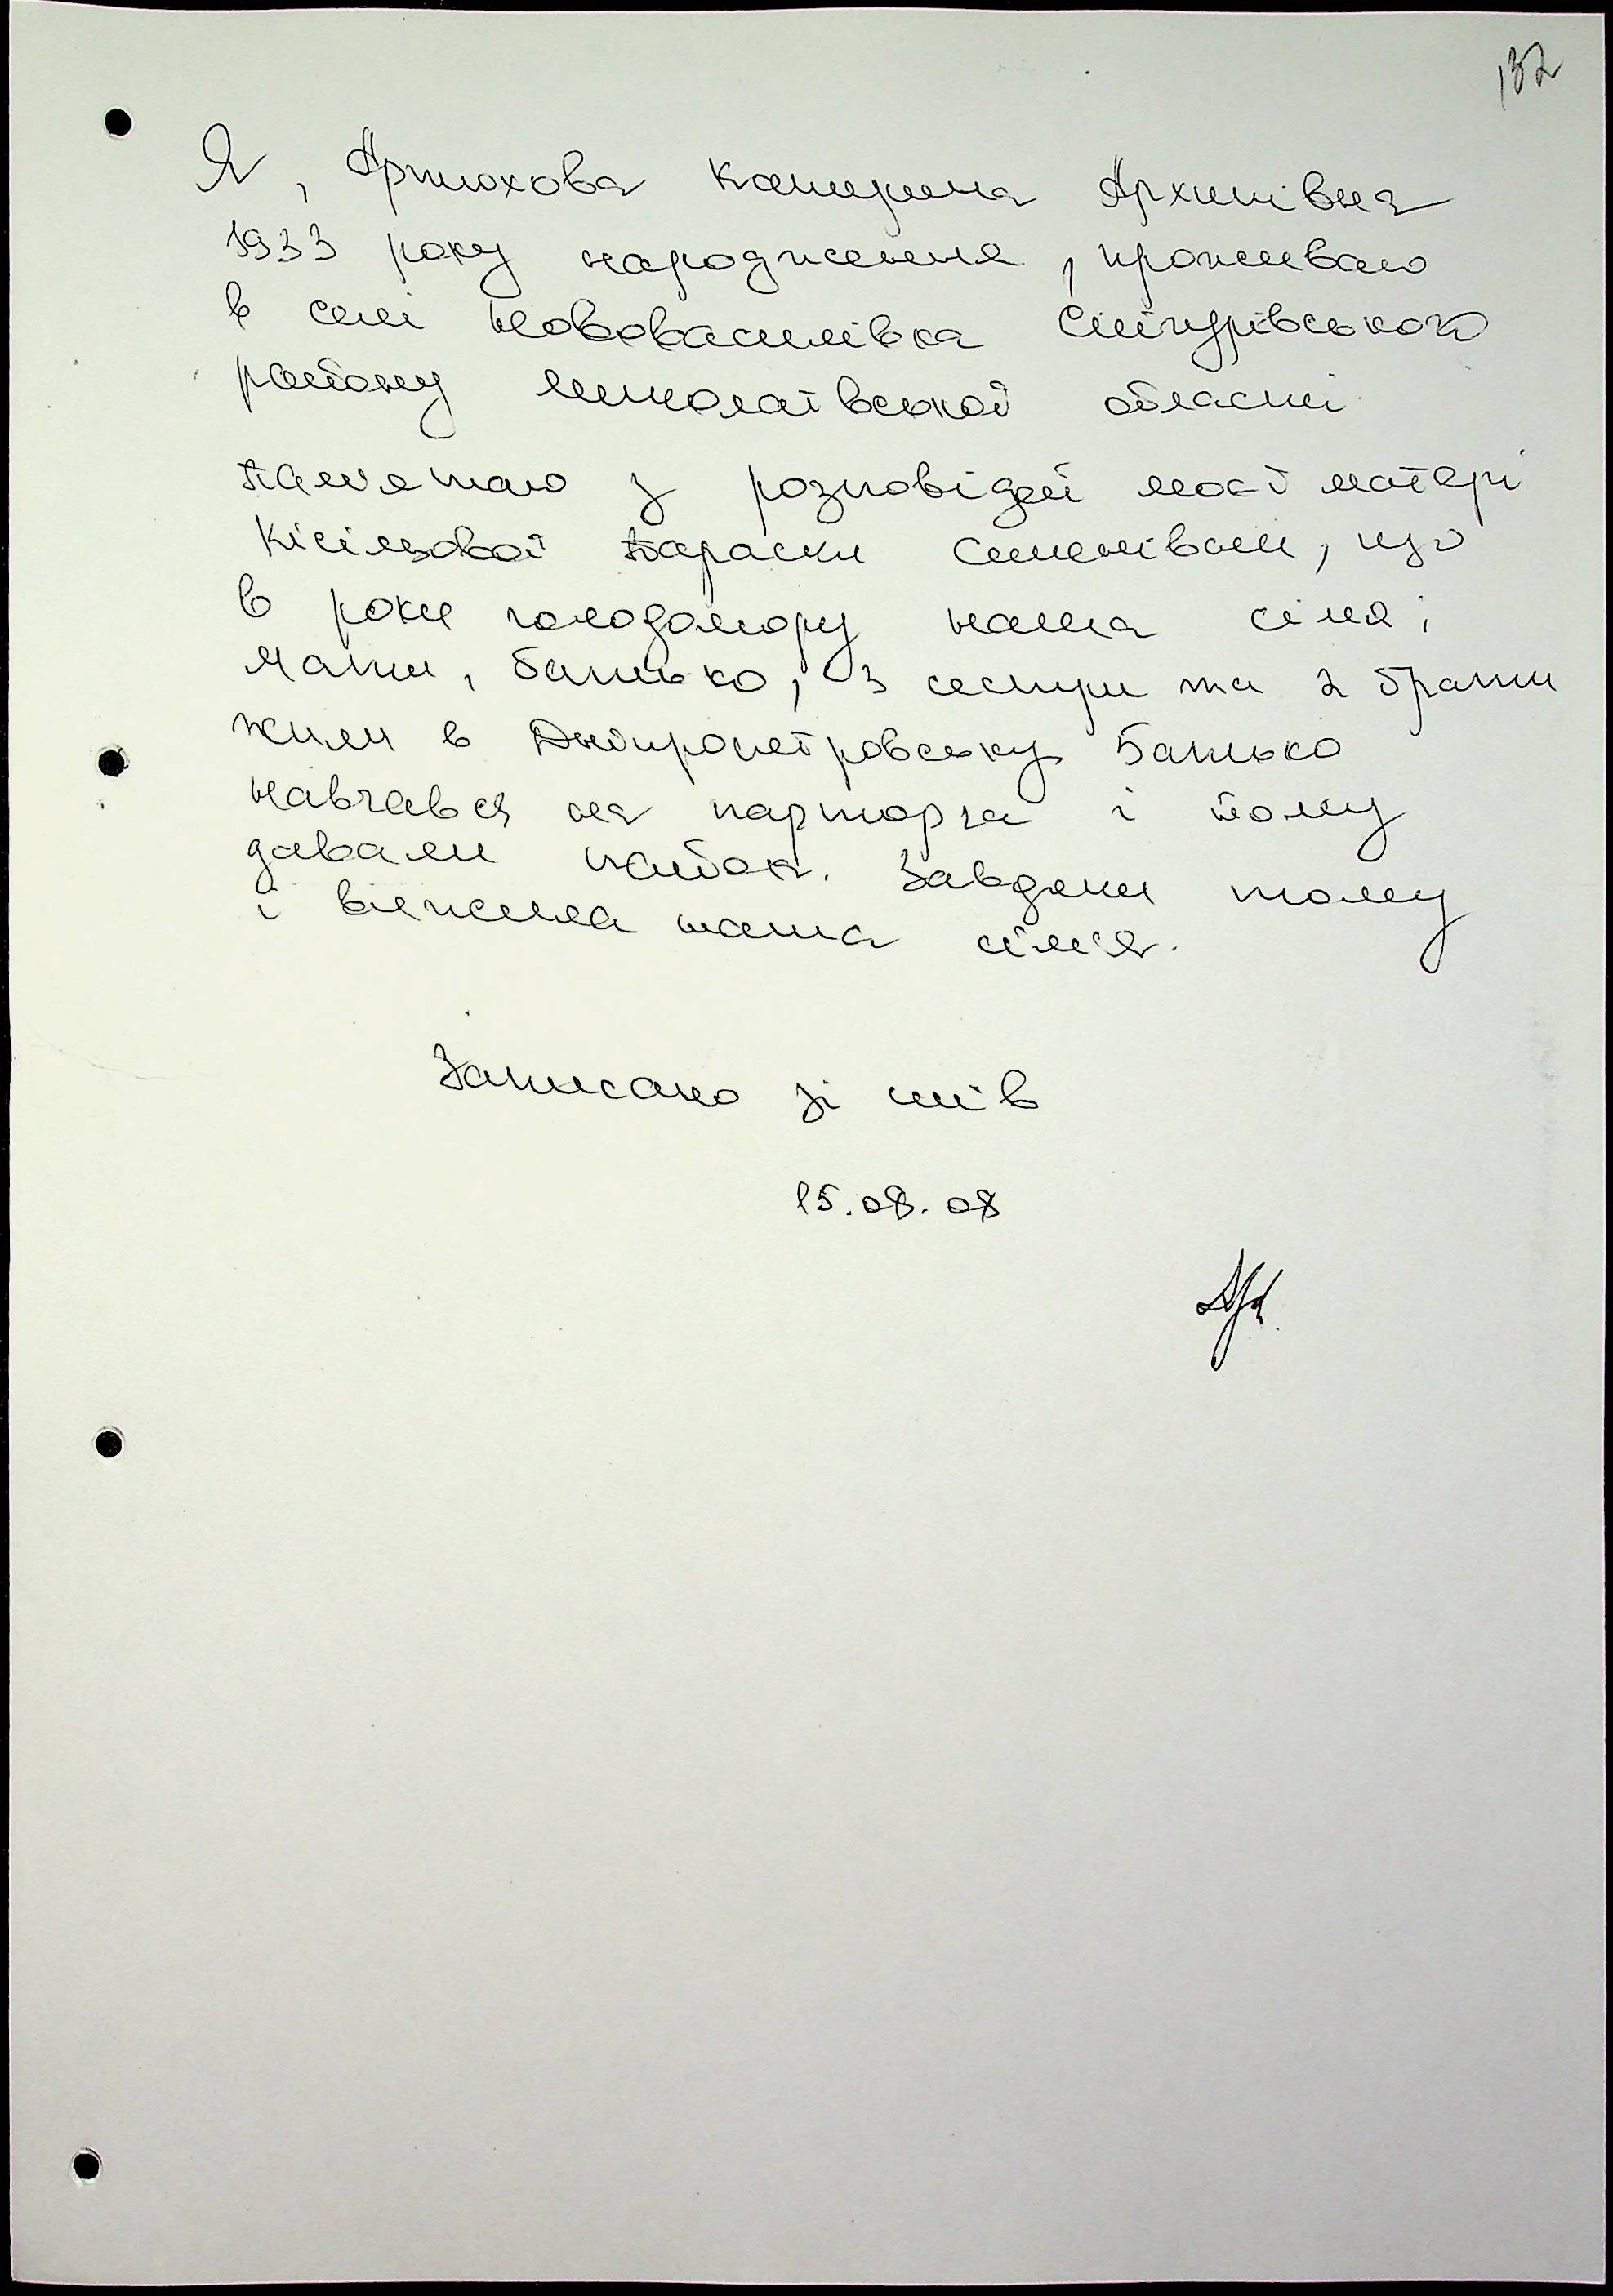 132
Я, Артюхова Катерина Архипівна
1933 року народження, проживаю
в селі Нововасилівка Снігурівського
району Миколаївської області
Пам'ятаю з розповідей моєї матері
Кісільової Параски Семенівни, що
в роки голодомору наша сімя;
мати, батько, 3 сестри та 2 брати
жили в Дніпропетровську. Батько
навчався на парторга і йому
давали пайок. Завдяки тому
і вижила наша сім'я.
Записано зі слів
15.08.08